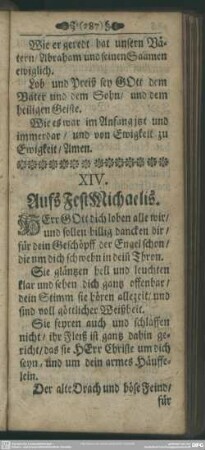 (287)
Wie er geredt hat unsern Vä-
tern/ Abraham und seinen Saamen
ewiglich.
Lob und Preiß sey GOtt dem
Vater und dem Sohn/ und dem
heiligen Geiste.
Wie es war im Anfang jtzt und
immerdar/ und von Ewigkeit zu
Ewigkeit/ Amen.
XIV.
Aufs Fest Michaelis.
HErr GOtt dich loben alle wir/
und sollen billig dancken dir
für dein Geschöpff der Engel schon/
die um dich schwebn in deim Thron.
Sie gläntzen hell und leuchten
klar und sehen dich gantz offenbar/
dein Stimm sie hören allezeit/ und
sind voll göttlicher Weißheit.
Sie feyren auch und schlaffen
nicht/ ihr Fleiß ist gantz dahin ge-
richt/ das sie HErr Christe um dich
seyn/ und um dein armes Häuffe-
lein.
Der alte Drach und böse Feind/
für